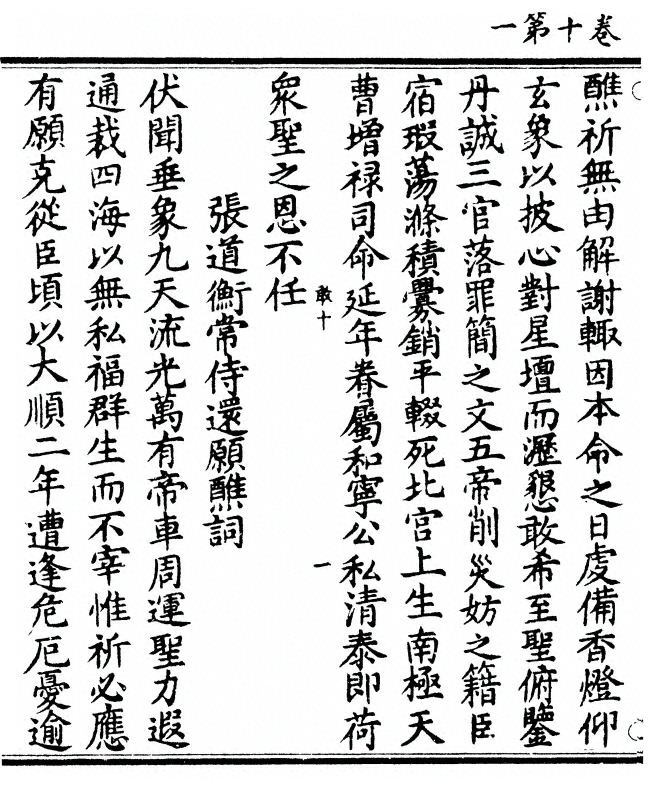 卷十第一
醮祈無由解謝輙因本命之日虔備香燈仰
玄象以披心對星壇而瀝懇敢希至聖俯鑒
丹誠三官落罪簡之文五帝削災妨之籍臣
宿瑕蕩滌積釁銷平輟死北宮上生南極天
曹增禄司命延年眷屬和寧公私清泰即荷
敢十
一
衆聖之恩不任
張道衡常侍還願醮詞
伏聞垂象九天流光萬有帝車周運聖力遐
通裁四海以無私福群生而不宰惟祈必應
有願克從臣頃以大順二年遭逢危厄憂逾